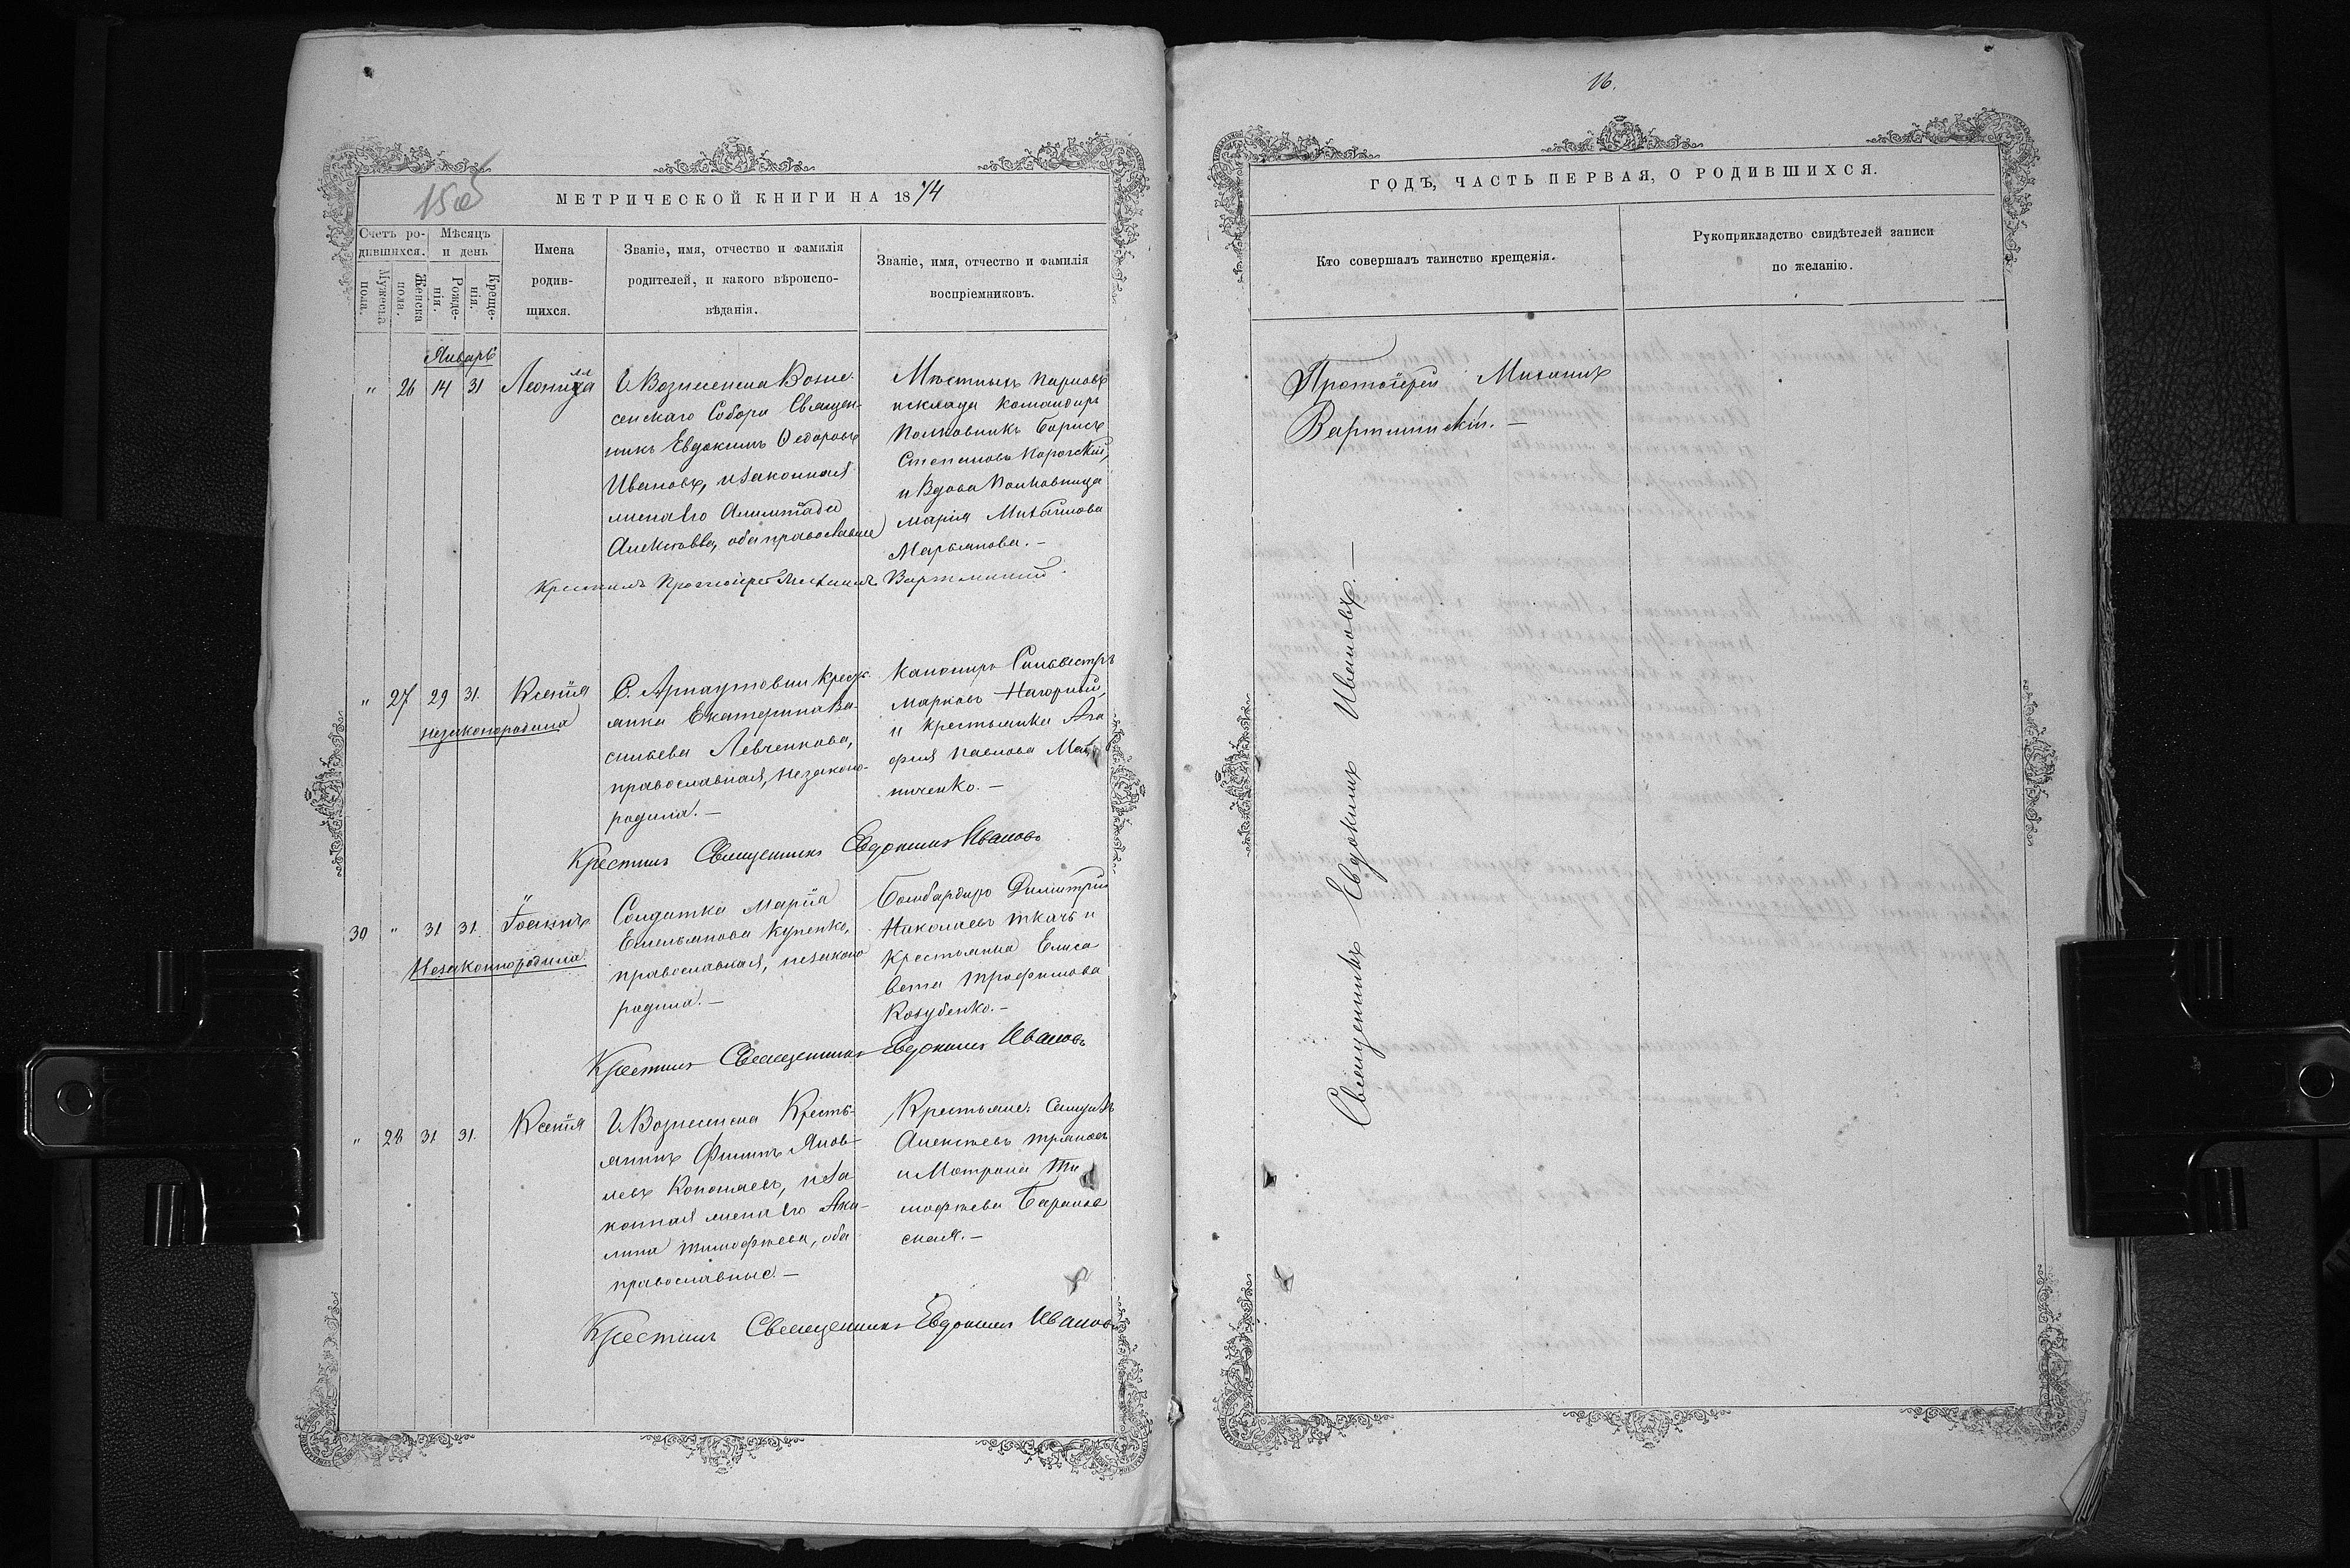 МЕТРИЧЕСКОЙ КНИГИ НА 1874
Счетъ ро-
дившихся.
Мѣсяцъ
и день
Мужеска
пола.
Женска
пола.
Рожде-
нія.
Креще-
нія.
Имена
родив-
шихся.
Званіе, имя, отчество и фамилія
родителей, и какого вѣроиспо-
вѣданія.
Званіе, имя, отчество и фамилія
воспріемниковъ.
Январь
" 26 14 31
Г. Вознесенска Возне-
сенскаго Собора Священ-
никъ Евдокимъ Ѳедоровъ
Ивановъ, и законная
жена его
Алексѣева, оба православные
командиръ
Полковникъ Борисъ
Степановъ
и Вдова Полковница
Марія Михайлова
Марьянова. —
Крестилъ Протоіерей Михаилъ Вартминскій.
" 27 29 31. Ксенія
незаконорождена
С. Арнаутовки крест-
янка Екатерина Ва-
сильева Левченкова,
православная, незаконо-
родила. —
Канониръ Сильвестръ
Марковъ Нагорный,
и крестьянка Ага-
фия Павлова
ниченко. —
Крестилъ Священникъ Евдокимъ Ивановъ
30 " 31 31. Іоаннъ
Солдатка Марія
Емельянова Купенко,
православная, незаконо
родила. —
Бомбардиръ Димитрій
Николаевъ Ткачъ и
крестьянка Елиса-
вета Трофимова
Козубенко. —
Крестилъ Священникъ Евдокимъ Ивановъ
" 28 31 31. Ксенія
Г. Вознесенска Кресть-
янинъ Филипъ Яков-
левъ Коноплевъ, и за-
конная жена его Аку-
лина Тимофѣева, оба
православные. —
Крестьяне: Самуилъ
Алексѣевъ
и Матрона Ти-
мофѣева Баранов-
ская. —
Крестилъ Священникъ Евдокимъ Ивановъ
16.
ГОДЪ, ЧАСТЬ ПЕРВАЯ, О РОДИВШИХСЯ.
Кто совершалъ таинство крещенія.
Рукоприкладство свидѣтелей записи
по желанію.
Протоіерей Михаилъ
Вартминскій. —
Священникъ Евдокимъ Ивановъ. —